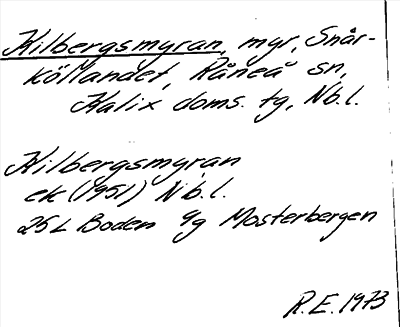 Kilbergsmyran, myr, Snår-
kölandet, Råneå sn,
Kalix doms. tg, Nb.l.
Kilbergsmyran
ek (1951) Nb.l.
25L Boden 9g Mosterbergen
R.E. 1973